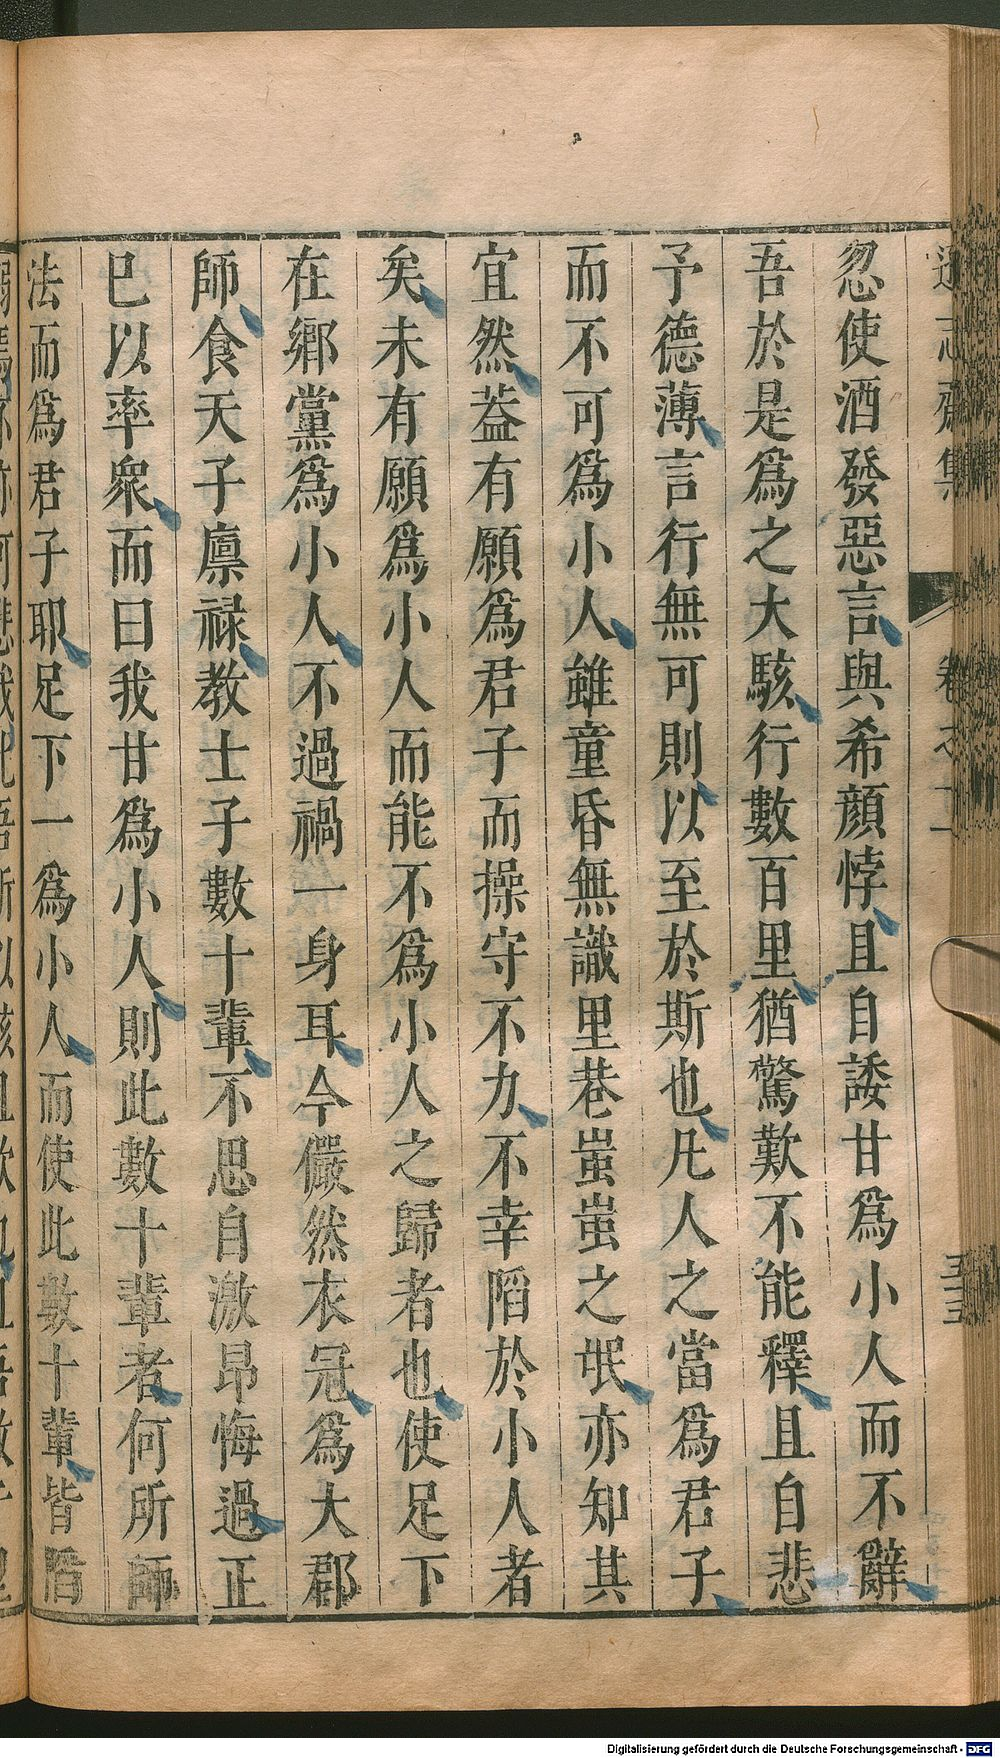 忽使酒發惡言與希顔悖且自諉甘爲小人而不辭
吾於是爲之大駭行數百里猶驚歎不能釋且自悲
予德薄言行無可則以至於斯也凡人之當爲君子
而不可爲小人雖童昏無識里巷蚩蚩之氓亦知其
宜然葢有願爲君子而操守不力不幸陷於小人者
矣未有願爲小人而能不爲小人之歸者也使足下
在鄉黨爲小人不過禍一身耳今儼然衣冠爲大郡
師食天子廪禄教士子數十輩不思自激昂悔過正
巳以率衆而曰我甘爲小人則此數十輩者何所師
法而爲君子耶足下一爲小人而使此數十輩皆陷
Digitalisierung gefördert durch die Deutsche Forschungsgemeinschaft - DFG